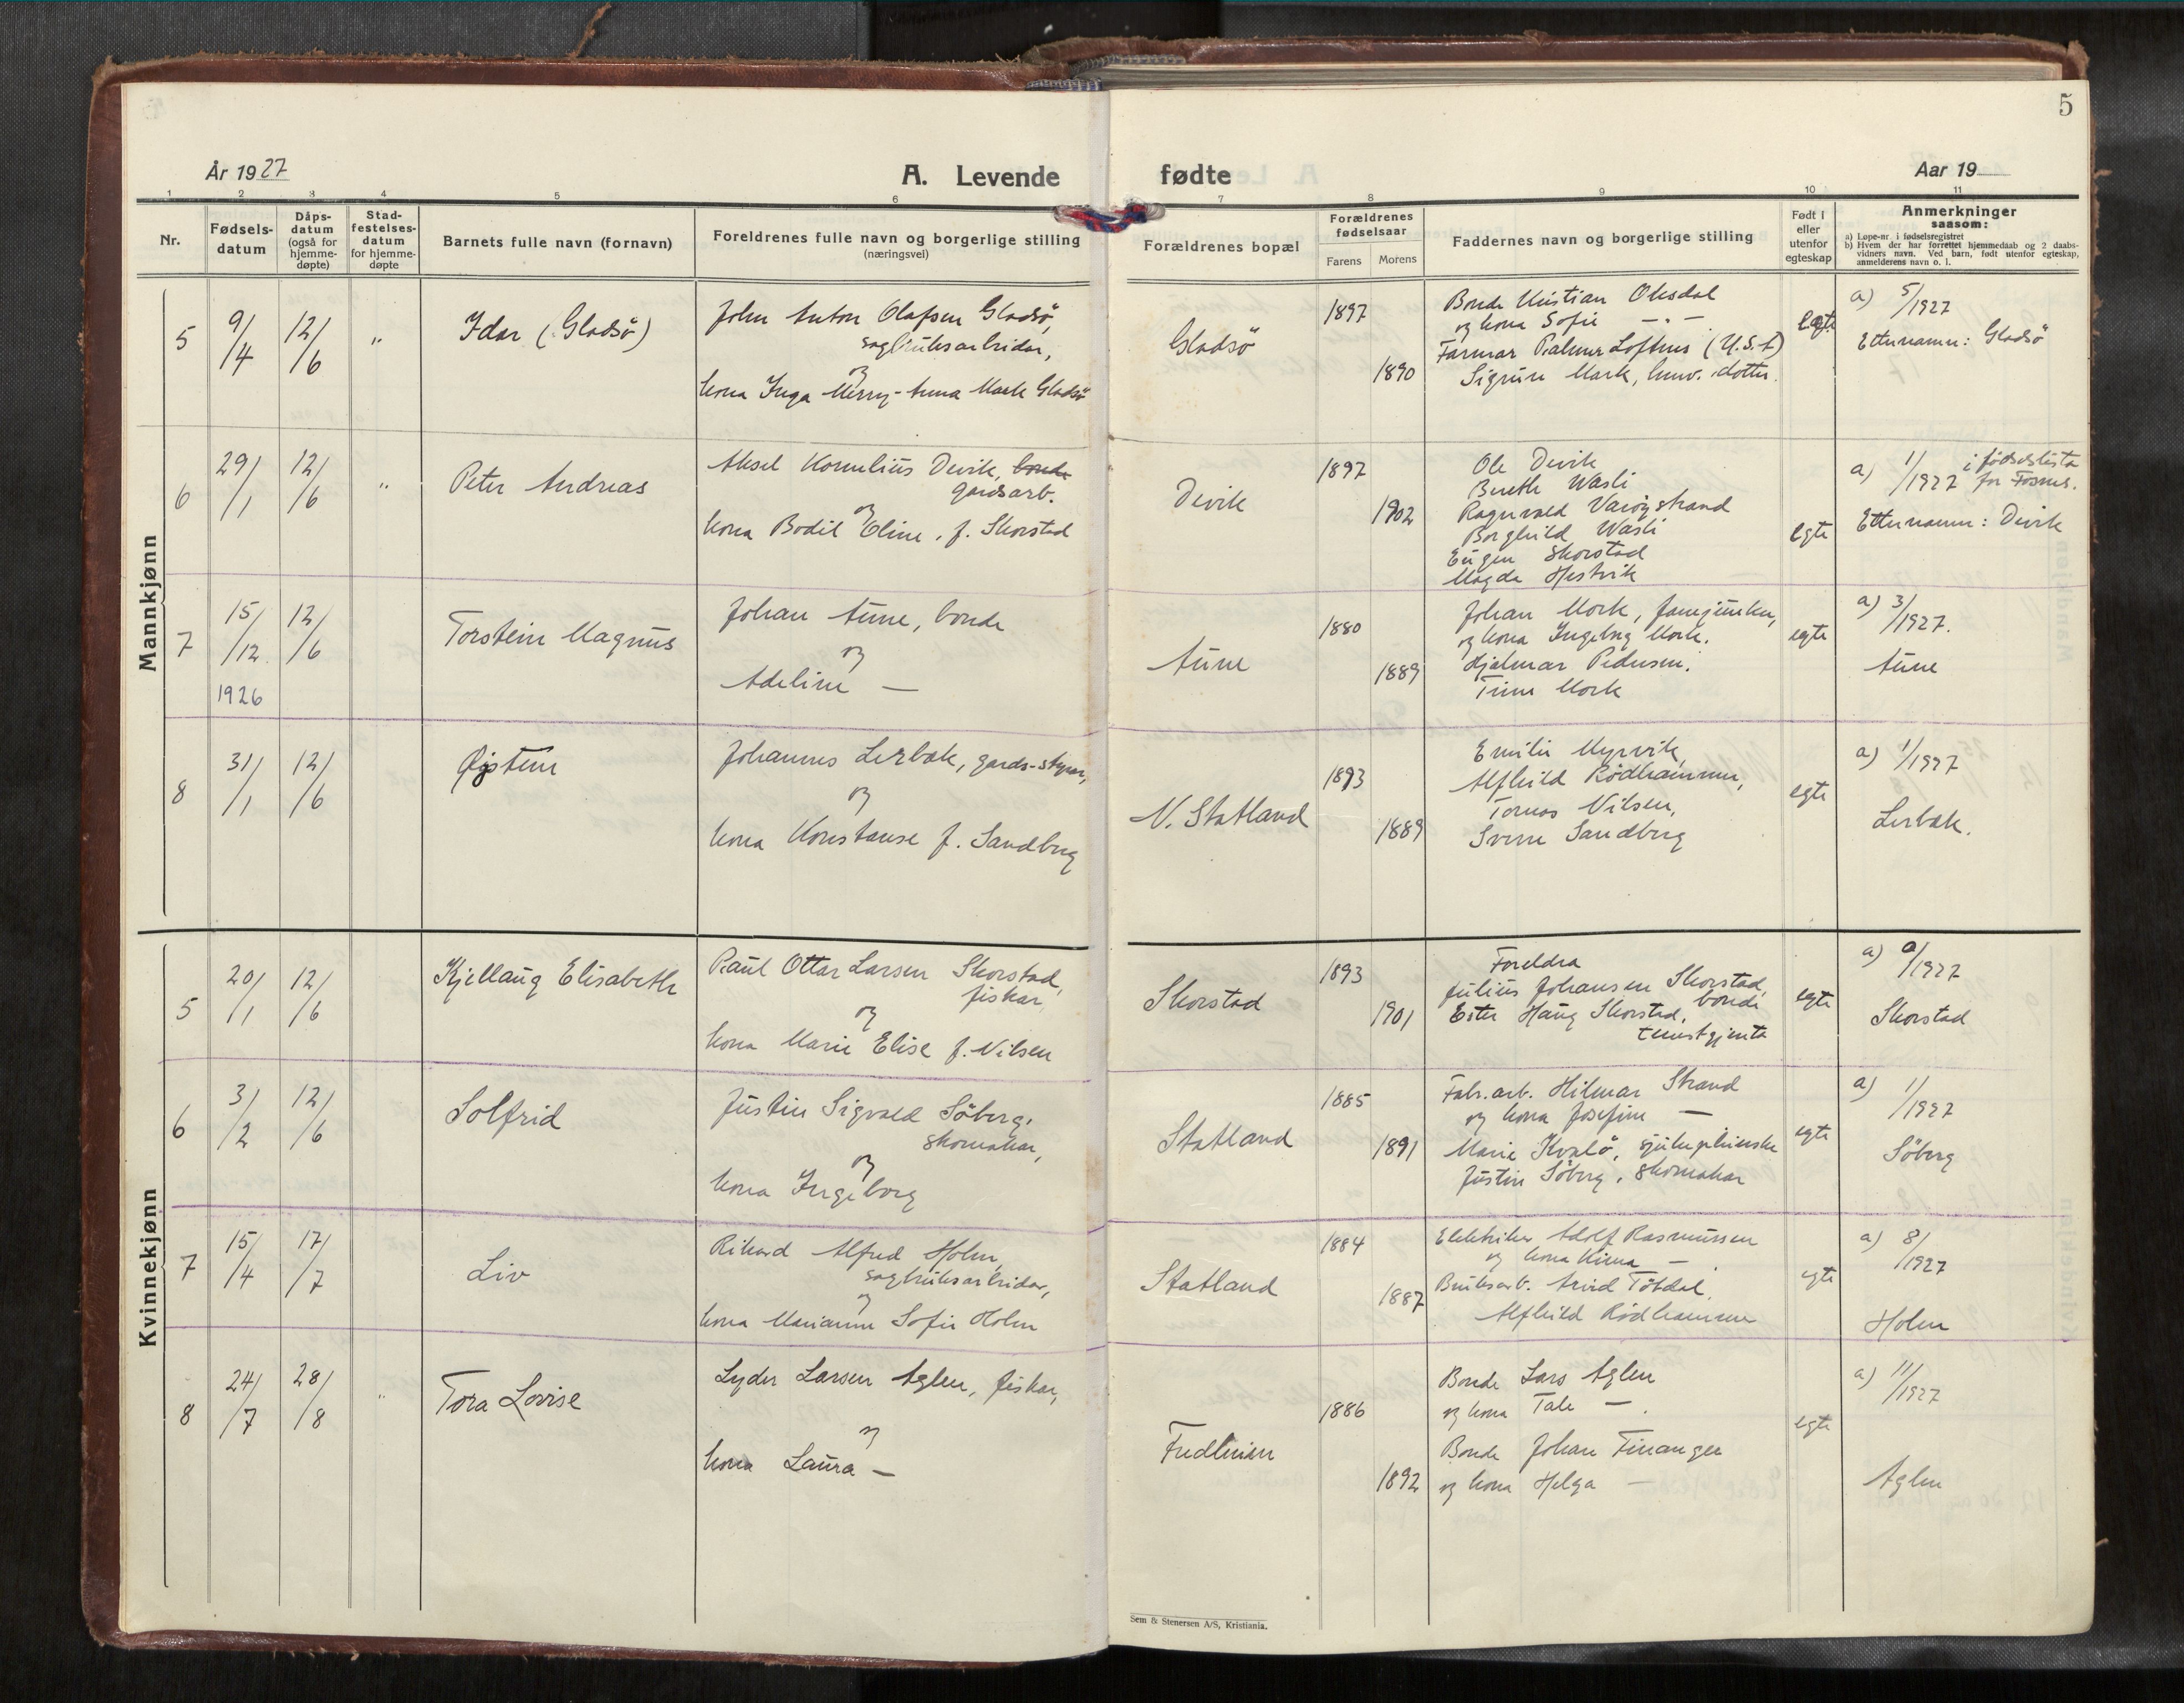 5
År 1927
A. Levende
fødte
Aar 19
1 2 3 4 5 6 7 8 9 10 11
Nr.
Fødsels-
datum
Dåps-
datum
(også for
hjemme-
døpte)
Stad-
festelses-
datum
for hjemme-
døpte
Barnets fulle navn (fornavn)
Foreldrenes fulle navn og borgerlige stilling
(næringsvei)
Forældrenes bopæl
Forældrenes
fødselsaar
Farens Morens
Faddernes navn og borgerlige stilling
Født i
eller
utenfor
egteskap
Anmerkninger
saasom:
a) Løpe-nr. i fødselsregistret
b) Hvem der har forrettet hjemmedaab og 2 daabs-
vidners navn. Ved barn, født utenfor egteskap,
anmelderens navn o. l.
Mannkjønn
5
9/4
12/6
"
Idar (Gladsö)
John Anton Olafsen Gladsö,
sagbruksarbeidar,
og
kona Inga Merry-Anna Mark Gladsö
Gladsö
1897
1890
Bonde Kristian Olesdal
og kona Sofie — " —
Farmar Palmer Loftnes (U.S.A)
Sigrun Mark, husv. dotter.
egte
a) 5/1927
Etternamn: Gladsö
6
29/1
12/6
"
Peter Andreas
Aksel Kornelius Devik, bonde
gardsarb.
og
kona Bodil Eline, f. Skorstad
Devik
1897
1902
Ole Devik
Bereth Wasli
Ragnvald Varöystrand
Borghild Wasli
Eugen Skorstad
Magda Hestvik
egte
a) 1/1927 i fødselslista
for Fosnes.
Etternamn: Devik
7
15/12
1926
12/6
Torstein Magnus
Johan Aune, bonde
og
Adeline —
Aune
1880
1889
Johan Mork, fanejunker,
og kona Ingeborg Mork.
Hjalmar Pedersen.
Trine Mork
egte
a) 3/1927.
Aune
8
31/1
12/6
Øystein
Johannes Lerbak, gards-styrar,
og
kona Konstanse f. Sandberg
N. Statland
1893
1889
Emilie Myrvik,
Alfhild Rödhammer,
Tomas Nilsen,
Sverre Sandberg
egte
a) 1/1927
Lerbak.
Kvinnekjønn
5
20/1
12/6
Kjellaug Elisabeth
Paul Ottar Larsen Skorstad,
fiskar,
og
kona Marie Elise f. Nilsen
Skorstad
1893
1901
Foreldra
Julius Johansen Skorstad,
bonde
Ester Haug Skorstad,
tenestgjenta
egte
a) 9/1927
Skorstad
6
3/2
12/6
Solfrid
Justin Sigvald Söberg,
skomakar,
og
kona Ingeborg
Statland
1885
1891
Fabr.arb. Hilmar Strand
og kona Josefine —
Marie Kvalö, sjukepleierske
Justin Söberg, skomakar
egte
a) 1/1927
Söberg
7
15/4
17/7
Liv
Rikard Alfred Holm,
sagbruksarbeidar,
og
kona Marianne Sofie Holm
Statland
1884
1887
Elektriker Adolf Rasmussen
og kona Kima —
Bruksarb. Arvid Tötdal,
Alfhild Rödhammer
egte
a) 8/1927
Holm
8
24/7
28/8
"
Tora Lovise
Lyder Larsen Aglen, fiskar,
og
kona Laura —
Fredheim
1886
1892
Bonde Lars Aglen
og kona Tale —.
Bonde Johan Finanger
og kona Helga —
egte
a) 11/1927
Aglen
Sem & Stenersen A/S, Kristiania.